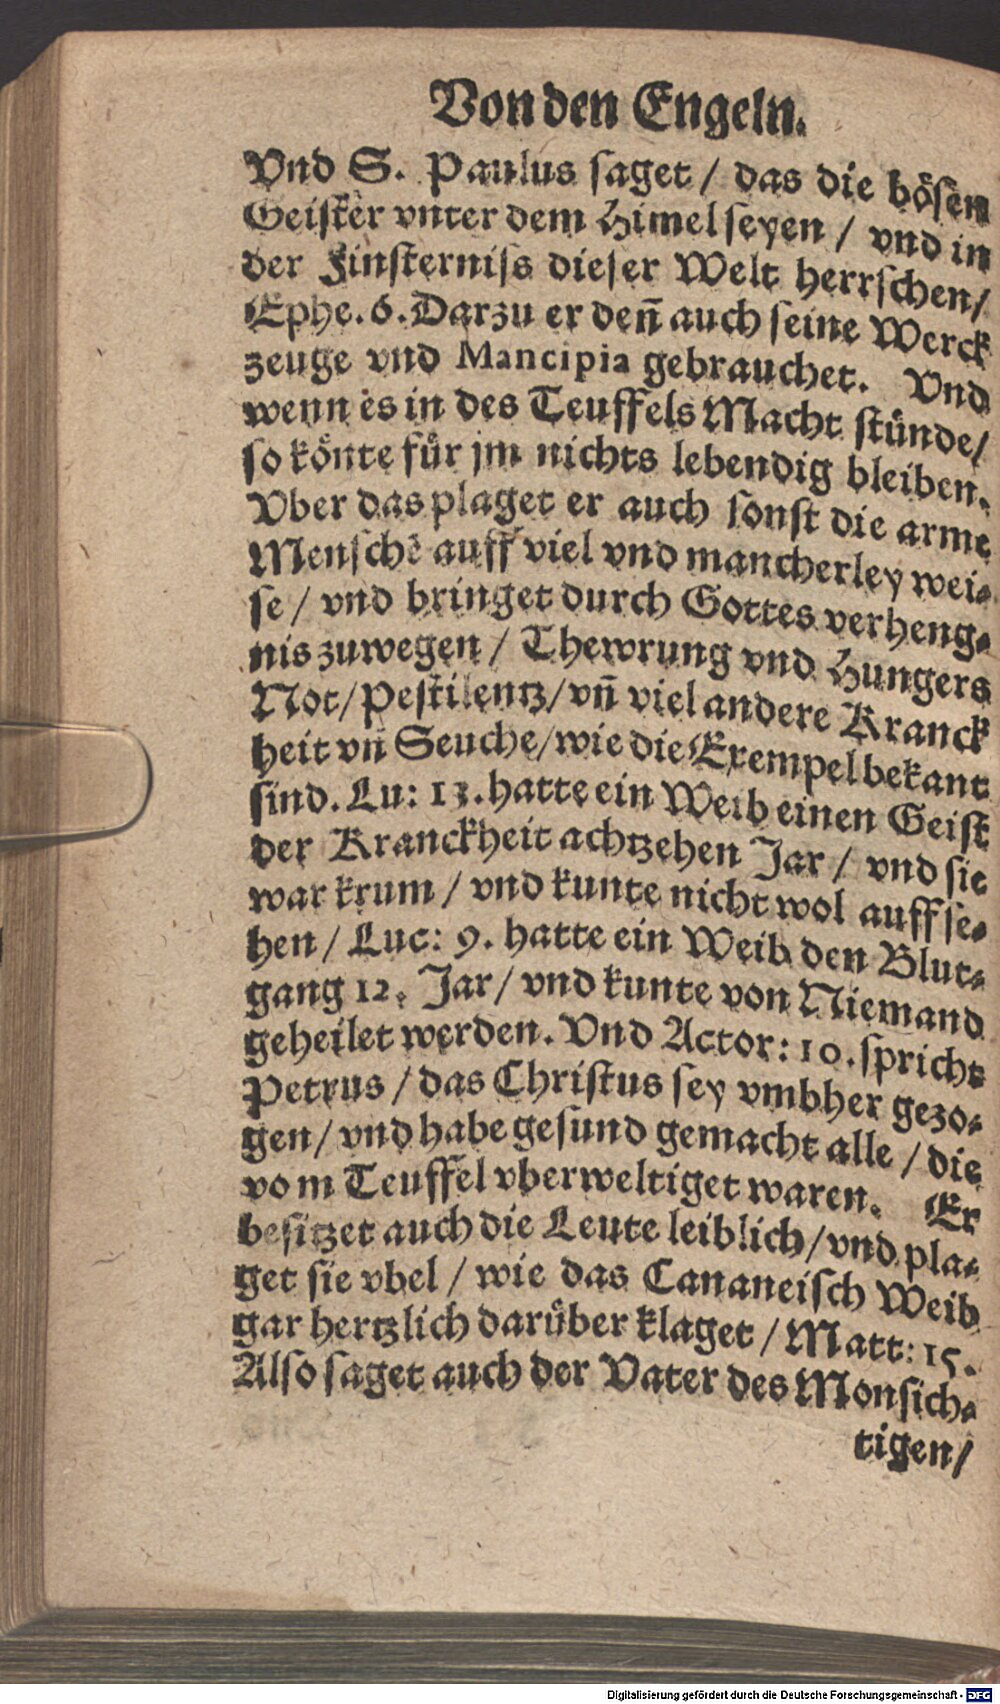 Von den Engeln.
Vnd S. Paulus saget / das die bösen
Geister vnter dem Himel seyen / vnd in
der Finsterniss dieser Welt herrschen/
Ephe. 6. Darzu er deñ auch seine Werck
zeuge vnd Mancipia gebrauchet. Vnd
wenn es in des Teuffels Macht stünde/
so könte für jm nichts lebendig bleiben.
Vber das plaget er auch sonst die arme
Menschē auff viel vnd mancherley wei-
se / vnd bringet durch Gottes verheng-
nis zuwegen / Thewrung vnd Hungers
Not/ Pestilentz/ vñ viel andere Kranck
heit vñ Seuche/ wie die Exempel bekant
sind. Lu: 13. hatte ein Weib einen Geist
der Kranckheit achtzehen Jar / vnd sie
war krum / vnd kunte nicht wol auffse-
hen / Luc: 9. hatte ein Weib den Blut-
gang 12. Jar/ vnd kunte von Niemand
geheilet werden. Vnd Actor: 10. spricht
Petrus / das Christus sey vmbher gezo-
gen/ vnd habe gesund gemacht alle / die
vom Teuffel vberweltiget waren. Er
besitzet auch die Leute leiblich/ vnd pla-
get sie vbel / wie das Cananeisch Weib
gar hertzlich darüber klaget / Matt: 15.
Also saget auch der Vater des Monsich-
tigen/
Digitalisierung gefördert durch die Deutsche Forschungsgemeinschaft - DFG